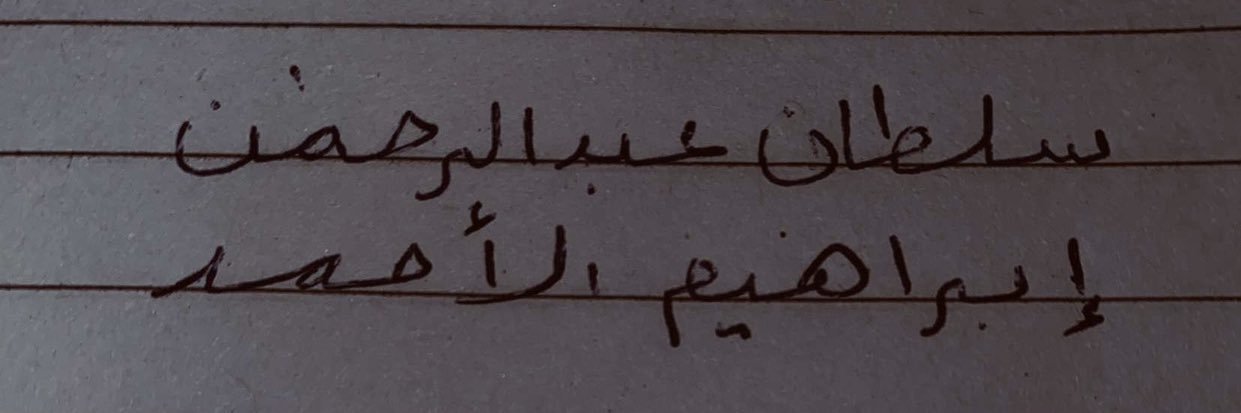 سلطان عبدالرحمن
إبراهيم الأحمد